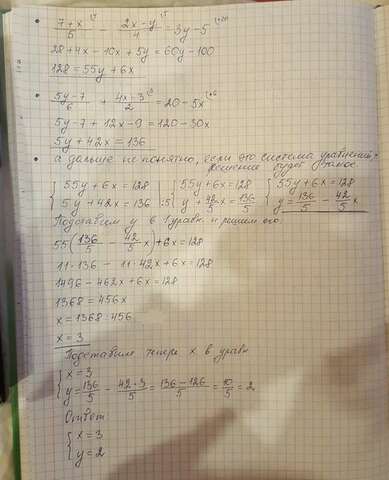 (7+x)/5 \4 - (2x-y)/4 \5 = 3y-5 \20
28+4x-10x+5y = 60y-100
128 = 55y+6x
• (5y-7)/6 + (4x-3)/2 \3 = 20-5x \6
5y-7+12x-9 = 120-30x
5y+42x = 136
• а дальше не понятно, если это система уравнений,
решение будет такое
{ 55y+6x = 128 { 55y+6x = 128 { 55y+6x = 128
5y+42x = 136 :5 y + 42/5 x = 136/5 y = 136/5 - 42/5 x
Подставим y в 1 уравн. и решим его:
55(136/5 - 42/5 x)+6x = 128
11·136 - 11·42x+6x = 128
1496-462x+6x = 128
1368 = 456x
x = 1368:456
x = 3
Подставим теперь x в уравн
{ x = 3
y = 136/5 - 42·3/5 = (136-126)/5 = 10/5 = 2
Ответ
{ x = 3
y = 2